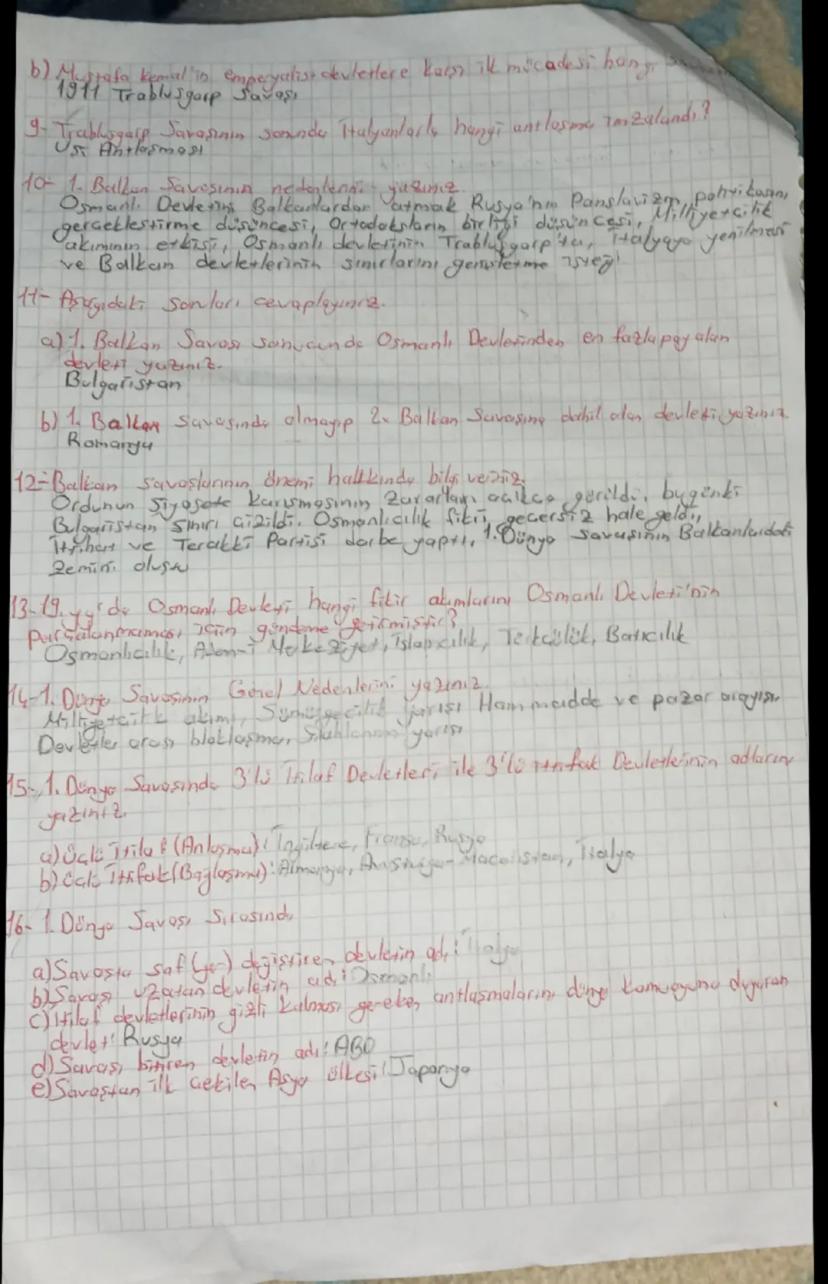 b) Mustafa Kemal'in emperyalist devletlere karşı ilk mücadesi hangi
1911 Trablusgarp Savaşı
9- Trablusgarp Savaşının sonunda İtalyanlarla hangi antlaşma imzalandı?
Uşi Antlaşması
10- 1. Balkan Savaşının nedenlerini yazınız.
Osmanlı Devletini Balkanlardan atmak Rusya'nın Panslavizm politikasını
gerçekleştirme düşüncesi, Ortodoksların birliği düşüncesi, Milliyetçilik
akımının etkisi, Osmanlı devletinin Trablusgarp'ta, İtalyaya yenilmesi
ve Balkan devletlerinin sınırlarını genişletme isteği
11- Aşağıdaki soruları cevaplayınız.
a) 1. Balkan Savaşı sonucunda Osmanlı Devletinden en fazla pay alan
devleti yazınız.
Bulgaristan
b) 1. Balkan savaşında olmayıp 2. Balkan Savaşına dahil olan devleti yazınız
Romanya
12- Balkan savaşlarının önemi hakkında bilgi veriniz.
Ordunun siyasete karışmasının zararları açıkça görüldü, bugünkü
Bulgaristan sınırı çizildi. Osmanlıcılık fikri geçersiz hale geldi,
İttihat ve Terakki Partisi darbe yaptı, 1. Dünya savaşının Balkanlardaki
zemini oluştu
13- 19. yy'da Osmanlı Devleti hangi fikir akımlarını Osmanlı Devleti'nin
parçalanmaması için gündeme getirmiştir?
Osmanlıcılık, Adem-i Merkeziyet, İslamcılık, Türkçülük, Batıcılık
14- 1. Dünya Savaşının Genel Nedenlerini yazınız
Milliyetçilik akımı, Sömürgecilik yarışı Hammadde ve pazar arayışı
Devletler arası bloklaşma, Silahlanma yarışı
15- 1. Dünya Savaşında 3'lü İtilaf Devletleri ile 3'lü ittifak Devletlerinin adlarını
yazınız.
a) Üçlü İtilaf (Anlaşma): İngiltere, Fransa, Rusya
b) Üçlü İttifak (Bağlaşma): Almanya, Avusturya-Macaristan, İtalya
16- 1. Dünya Savaşı Sırasında
a) Savaşta saf (yer) değiştiren devletin adı: İtalya
b) Savaşı uzatan devletin adı: Osmanlı
c) İtilaf devletlerinin gizli kalması gereken antlaşmalarını dünya kamuoyuna duyuran
devlet: Rusya
d) Savaşı bitiren devletin adı: ABD
e) Savaştan ilk çekilen Asya ülkesi: Japonya